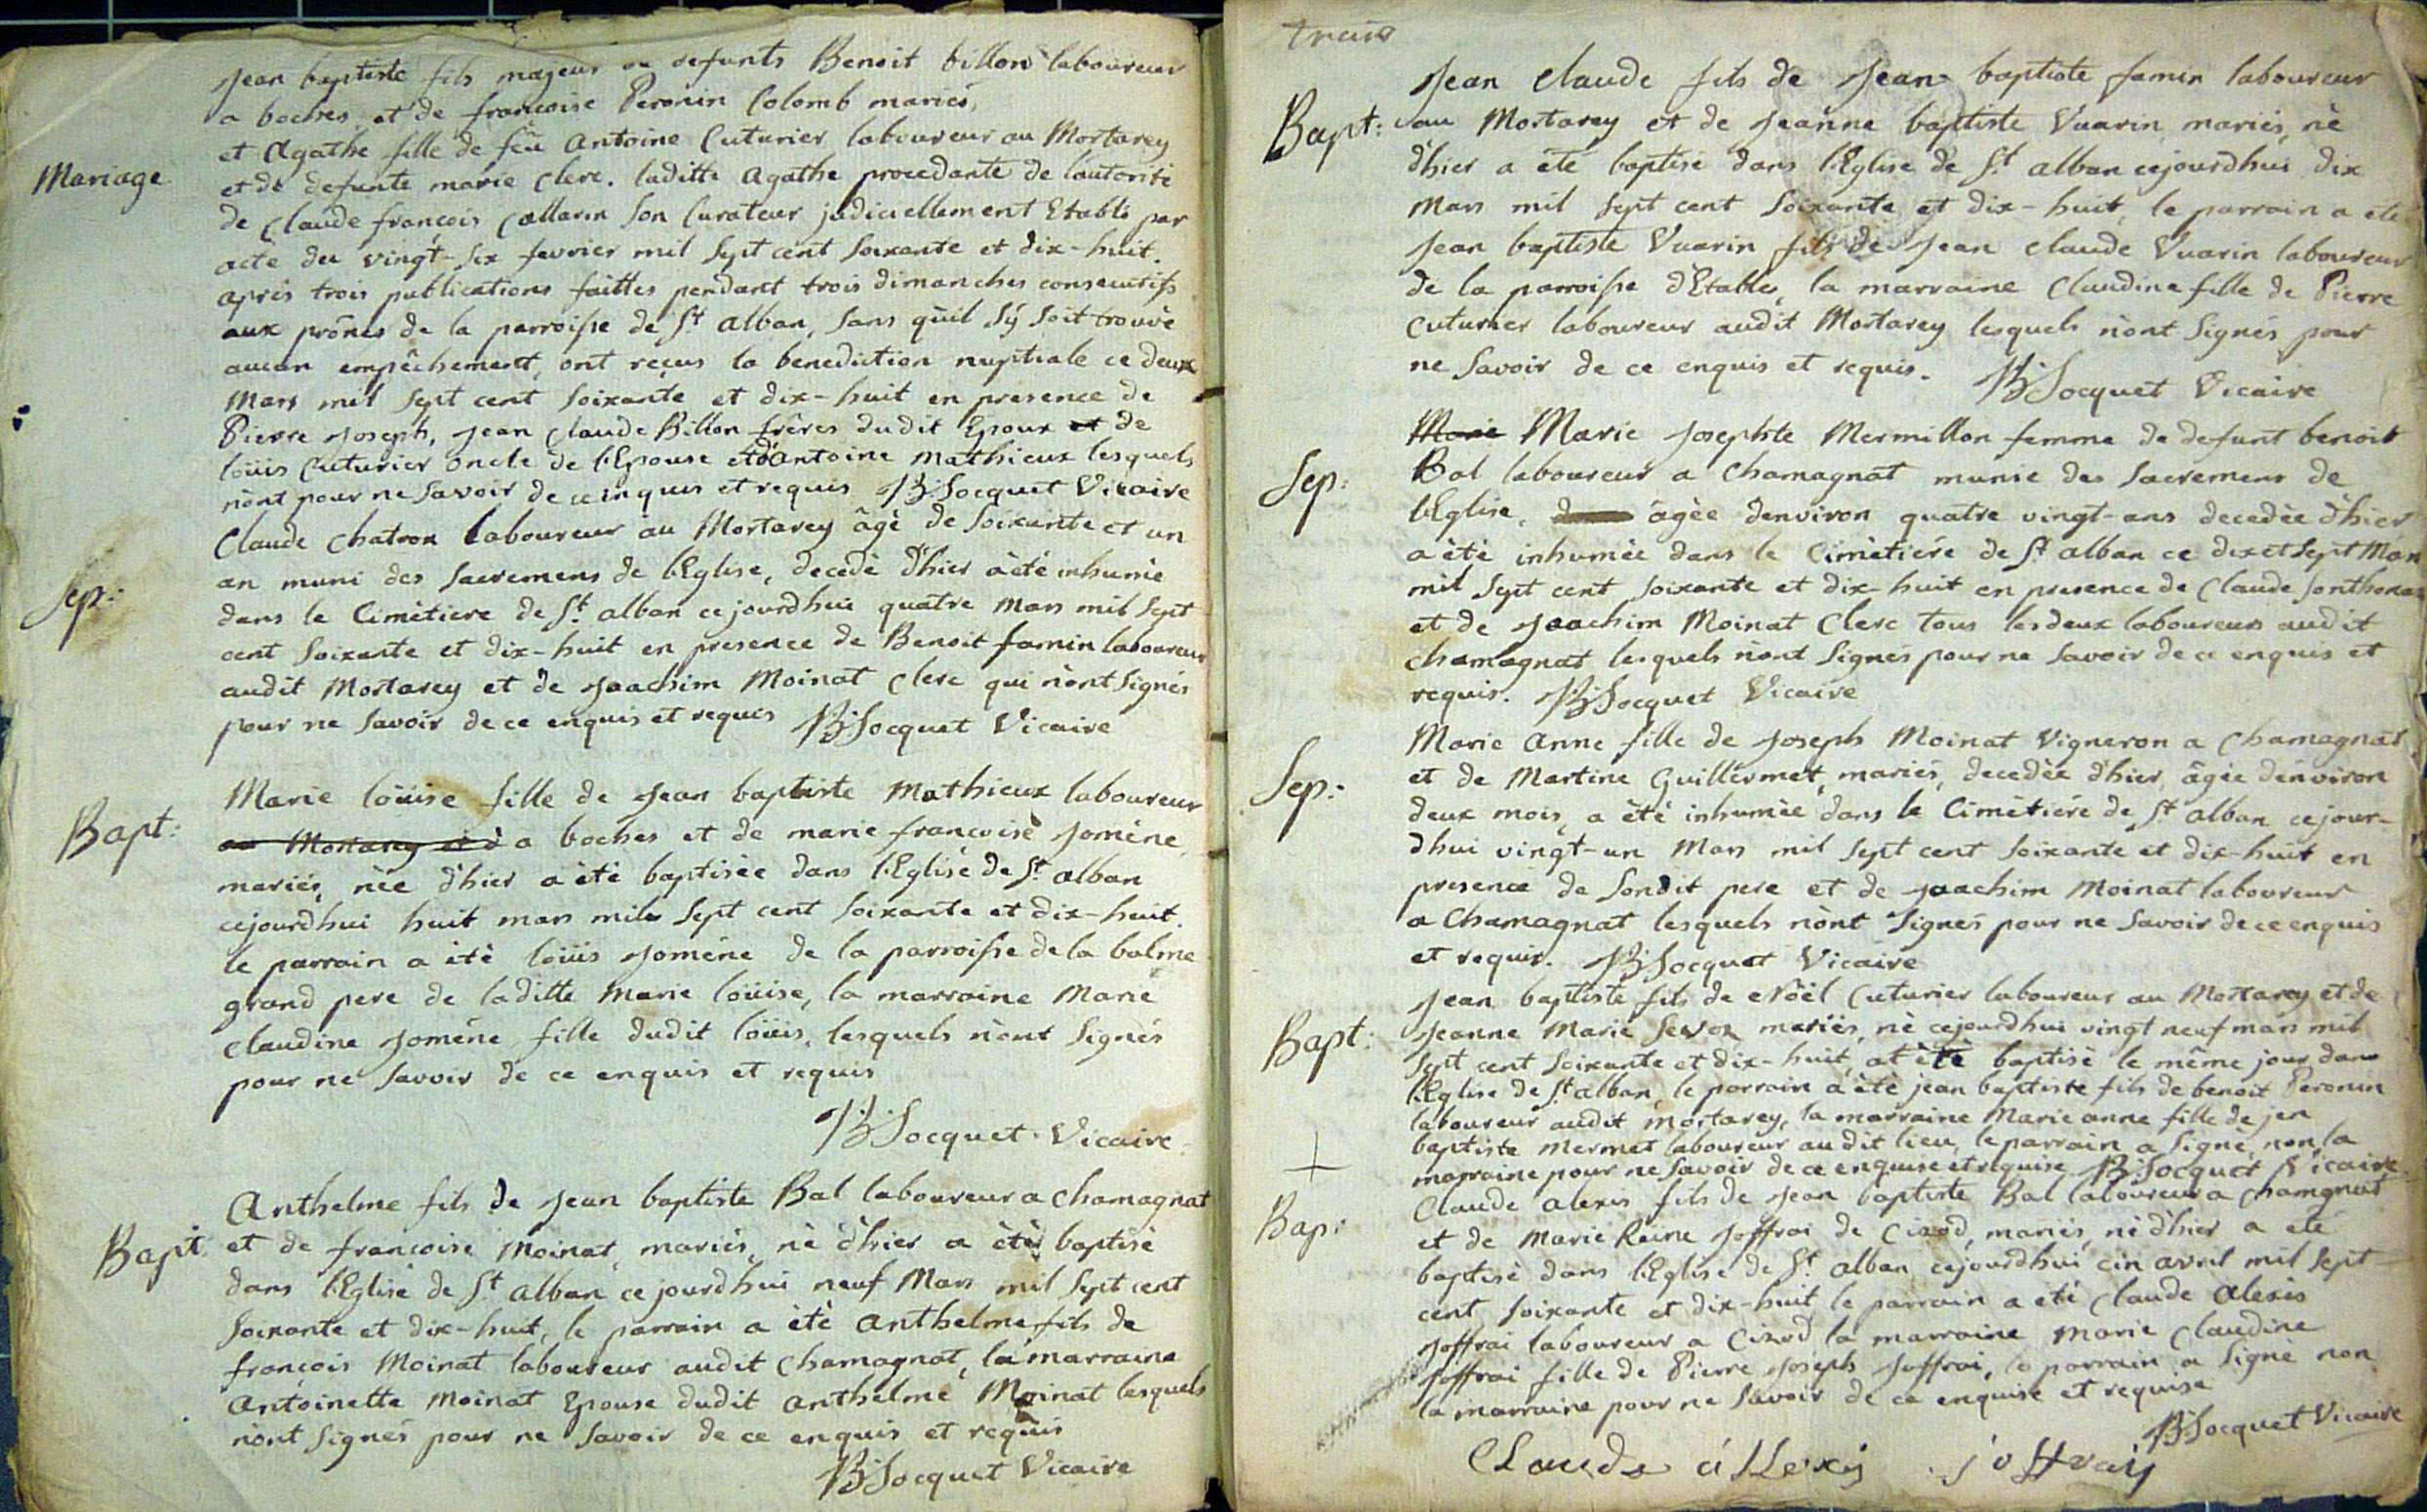 Jean baptiste fils majeur de defunts Benoit billon laboureur
a boches et de francoise Peronin Colomb mariés,
et Agathe fille de feu Antoine Cuturier laboureur au Mortarey
Mariage
et de defunte marie Clerc. laditte Agathe procedante de lautorité
de Claude françois Callarin son Curateur judiciellement Etabli par
acte du vingt-six fevrier mil sept cent soixante et dix-huit.
après trois publications faittes pendant trois dimanches consecutifs
aux prônes de la parroisse de St alban, sans qu'il s'y soit trouvé
aucun empêchement, ont reçus la benediction nuptiale ce deux
Mars mil sept cent soixante et dix-huit en presence de
Pierre Joseph, Jean Claude Billon frères dudit Epoux et de
loüis Cuturier oncle de l'Epouse et d'antoine Mathieux lesquels
n'ont pour ne savoir de ce enquis et requis BJocquet Vicaire
Claude Chatron laboureur au Mortarey âgé de soixante et un
Sep:
an muni des sacremens de l'Eglise, decedé d'hier a été inhumé
dans le Cimètiere de St. alban cejourdhui quatre Mars mil sept
cent soixante et dix-huit en presence de Benoit famin laboureur
audit Mortarey et de Joachim Moinat Clerc qui n'ont signés
pour ne savoir de ce enquis et requis BJocquet Vicaire
Marie loüise fille de Jean baptiste Mathieux laboureur
Bapt:
au Mortarey et d a boches et de marie francoise Jomène
mariés, née d'hier a été baptisée dans l'Eglise de St. alban
cejourdhui huit mars mil sept cent soixante et dix-huit.
le parrain a été loüis Jomène de la parroisse de la balme
grand pere de laditte Marie loüise, la marraine Marie
Claudine Jomène fille dudit loüis, lesquels n'ont signés
pour ne savoir de ce enquis et requis
BJocquet Vicaire
Anthelme fils de Jean baptiste Bal laboureur a Chamagnat
Bapt.
et de francoise Moinat, mariés, né d'hier a été baptisé
dans l'Eglise de St alban cejourdhui neuf Mars mil sept cent
soixante et dix-huit, le parrain a été Anthelme fils de
françois Moinat laboureur audit Chamagnat, la marraine
Antoinette Moinat Epouse dudit Anthelme Moinat lesquels
n'ont signés pour ne savoir de ce enquis et requis
BJocquet Vicaire
trois
Jean Claude fils de Jean baptiste famin laboureur
Bapt:
au Mortarey et de Jeanne baptiste Vuarin mariés, né
d'hier a été baptisé dans l'Eglise de St alban cejourdhui dix
Mars mil sept cent soixante et dix-huit, le parrain a été
Jean baptiste Vuarin fils de Jean Claude Vuarin laboureur
de la parroisse d'Etables, la marraine Claudine fille de Pierre
Cuturier laboureur audit Mortarey lesquels n'ont signés pour
ne savoir de ce enquis et requis. BJocquet Vicaire
Marie Marie Josephte Mermillon femme de defunt benoit
Sep:
Bal laboureur a Chamagnat munie des sacremens de
l'Eglise, âgée denviron quatre vingt-ans decedée d'hier
a été inhumée dans le Cimètiere de St alban ce dix et sept Mars
mil sept cent soixante et dix-huit en presence de Claude Jonthoná
et de Joachim Moinat Clerc tous les deux laboureurs audit
Chamagnat lesquels n'ont signés pour ne savoir de ce enquis et
requis. BJocquet Vicaire
Marie Anne fille de Joseph Moinat Vigneron a Chamagnat
Sep:
et de Martine Guillermet, mariés, decedée d'hier, âgée denviron
deux mois, a été inhumée dans le Cimètiere de St alban cejour-
dhui vingt-un Mars mil sept cent soixante et dix-huit en
presence de sondit pere et de Joachim Moinat laboureur
a Chamagnat lesquels n'ont signés pour ne savoir de ce enquis
et requis. BJocquet Vicaire
Jean baptiste fils de Noël Cuturier laboureur au Mortarey et de
Bapt:
Jeanne Marie Sevoz mariés, né cejourdhui vingt neuf mars mil
sept cent soixante et dix-huit, at été baptisé le même jour dans
l'Eglise de St alban, le parrain a été jean baptiste fils de benoit Peronin
laboureur audit Mortarey, la marraine Marie anne fille de jen
baptiste Mermet laboureur audit lieu, le parrain a signé, non la
marraine pour ne savoir de ce enquise et requise BJocquet Vicaire
Claude alexis fils de Jean baptiste Bal laboureur a Chamgnat
Bap:
et de Marie Reine Joffrai de Cizod, mariés, né d'hier a été
baptisé dans l'Eglise de St. alban cejourdhui cin avril mil sept
cent soixante et dix-huit le parrain a été Claude Alexis
Joffrai laboureur a Cizod la marraine Marie Claudine
Joffrai fille de Pierre Joseph Joffrai, le parrain a signé non
la marraine pour ne savoir de ce enquise et requise
BJocquet Vicaire
Claude allexij joffraij